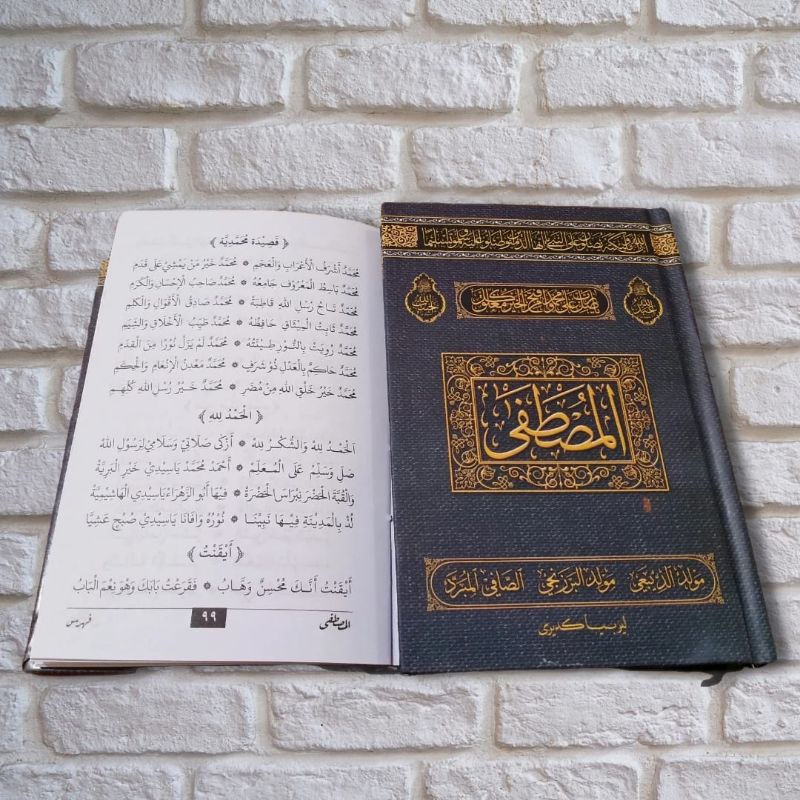 ﴿ قَصِيْدَة مُحَمَّدِيَّه ﴾
مُحَمَّدٌ أَشْرَفُ الْأَعْرَابِ وَالْعَجَمِ * مُحَمَّدٌ خَيْرُ مَنْ يَمْشِيْ عَلَى قَدَمِ
مُحَمَّدٌ بَاسِطُ الْمَعْرُوْفِ جَامِعُهُ * مُحَمَّدٌ صَاحِبُ الْإِحْسَانِ وَالْكَرَمِ
مُحَمَّدٌ تَاجُ رُسْلِ اللهِ قَاطِبَةً * مُحَمَّدٌ صَادِقُ الْأَقْوَالِ وَالْكَلِمِ
مُحَمَّدٌ ثَابِتُ الْمِيْثَاقِ حَافِظُهُ * مُحَمَّدٌ طَيِّبُ الْأَخْلَاقِ وَالشِّيَمِ
مُحَمَّدٌ رُوِيَتْ بِالنُّوْرِ طِيْنَتُهُ * مُحَمَّدٌ لَمْ يَزَلْ نُوْرًا مِنَ الْقِدَمِ
مُحَمَّدٌ حَاكِمٌ بِالْعَدْلِ ذُوْ شَرَفٍ * مُحَمَّدٌ مَعْدِنُ الْإِنْعَامِ وَالْحِكَمِ
مُحَمَّدٌ خَيْرُ خَلْقِ اللهِ مِنْ مُضَرٍ * مُحَمَّدٌ خَيْرُ رُسْلِ اللهِ كُلِّهِمِ
﴿ اَلْحَمْدُ لِلهِ ﴾
اَلْحَمْدُ لِلهْ وَالشُّكْرُ لِلهْ * أَزْكَى صَلَاتِيْ وَسَلَامِيْ لِرَسُوْلِ اللهْ
صَلِّ وَسَلِّمْ عَلَى الْمُعَلِّمْ * أَحْمَدْ مُحَمَّدْ يَاسِيْدِيْ خَيْرِ الْبَرِيَّةْ
وَالْقُبَّةْ الْخَضْرَةْ نِبْرَاسِ الْحَضْرَةْ * فِيْهَا أَبُو الزَّهْرَاءْ يَاسِيْدِيْ الْهَاشِمِيَّةْ
لُذْ بِالْمَدِيْنَةْ فِيْهَا نَبِيُّنَا * نُوْرُهْ وَافَانَا يَاسِيْدِيْ صُبْحٍ عَشِيًّا
﴿ أَيْقَنْتُ ﴾
أَيْقَنْتُ أَنَّكَ مُحْسِنٌ وَهَّابُ * فَقَرَعْتُ بَابَكَ وَهُوَ نِعْمَ الْبَابُ
المصطفى ٩٩ فهرس
المُصْطَفَى
مولد الديبعي مولد البرزنجي الصافي المبرد
ليربيا كديرى